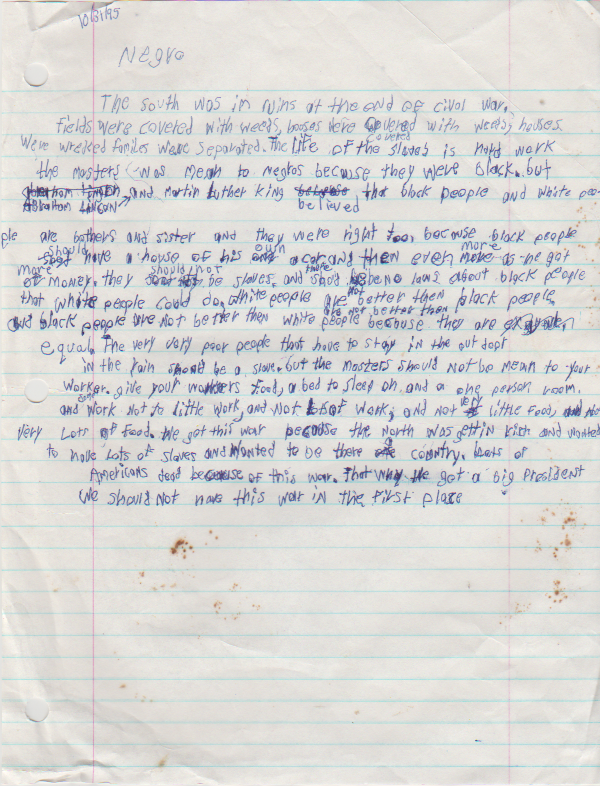 10/31/95
Negro
The south was in ruins at the end of cival war.
fields were covered with weeds, houses were covered with weeds, houses.
covered
were wreiked familes were separated. The life of the slaves is hard work
the masters was mean to negros because they were black. but
Abraham Lincon and martin luther king that black people and white peo-
believed
ple are bothers and sister and they were right too, because black people
should have a house of his own a car and then even more as we got
more of money. they should not be slaves. and there be no laws about black people
that white people could do. white people are not better then black people.
and black people are not better then white people because they are
equal. The very very poor people that have to stay in the out dort
in the rain should be a slave. but the masters should not be mean to your
worker. give your workers food, a bed to sleep on. and a one person room.
and work not to little work, and not lot of work, and not very little food, and not
very lots of food. We got this war because the north was gettin rich and wanted
to have lots of slaves and wanted to be there country. Lots of
Americans dead because of this war. that why we got a big President
We should not have this war in the first place